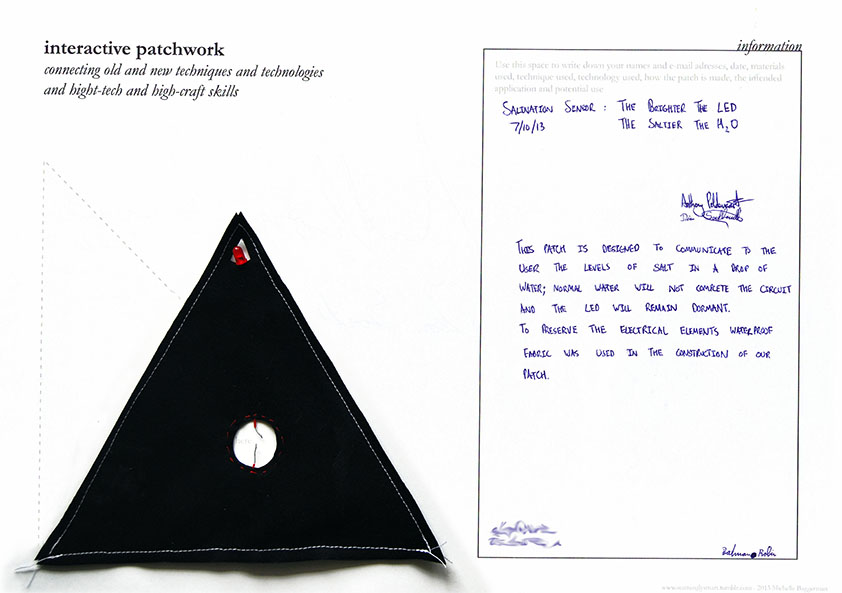 interactive patchwork
connecting old and new techniques and technologies
and hight-tech and high-craft skills
information
Use this space to write down your names and e-mail adresses, date, materials
used, technique used, technology used, how the patch is made, the intended
application and potential use
SALINATION SENSOR : THE BRIGHTER THE LED
7/10/13 THE SALTIER THE H2O
Anthony
THIS PATCH IS DESIGNED TO COMMUNICATE TO THE
USER THE LEVELS OF SALT IN A DROP OF
WATER; NORMAL WATER WILL NOT COMPLETE THE CIRCUIT
AND THE LED WILL REMAIN DORMANT.
TO PRESERVE THE ELECTRICAL ELEMENTS WATERPROOF
FABRIC WAS USED IN THE CONSTRUCTION OF OUR
PATCH.